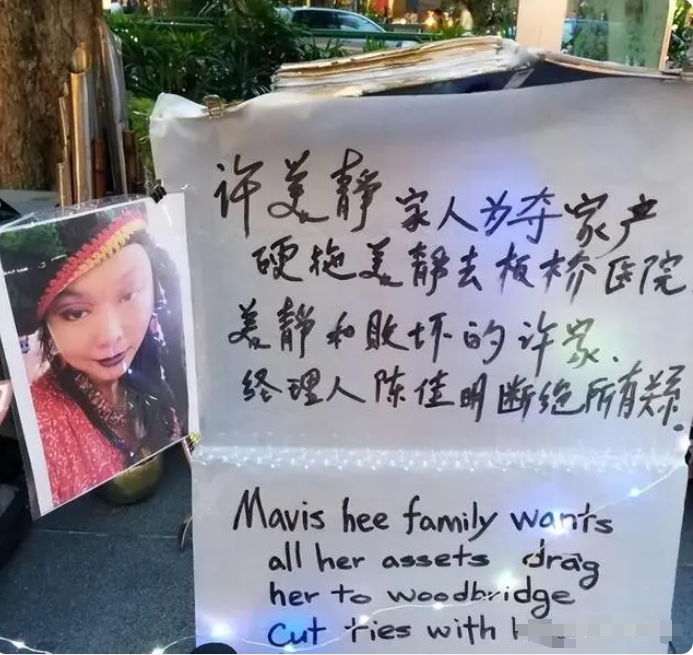 许美静 家人为夺家产
硬拖美静去板桥医院
美静和败坏的许家、
经理人陈佳明断绝所有关系.
Mavis hee family wants
all her assets drag
her to woodbridge
Cut ties with